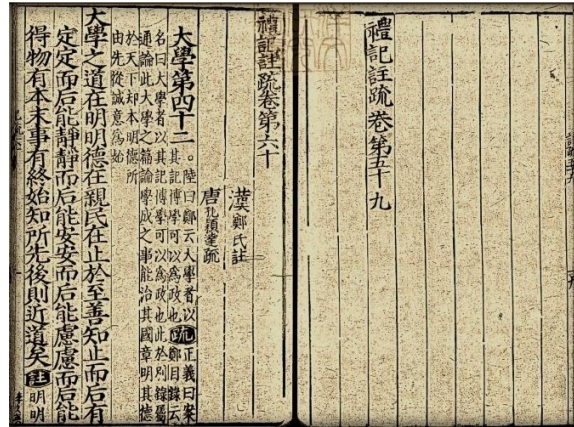 禮記註疏卷第五十九
禮記註疏卷第六十
漢鄭氏註
唐孔穎達疏
大學第四十二。陸曰鄭云大學者以其記博學可以為政也疏正義曰案鄭目錄云
名曰大學者以其記博學可以為政也此於別錄屬
通論此大學之篇論學成之事能治其國章明其德
於天下却本明德所
由先從誠意為始
大學之道在明明德在親民在止於至善知止而后有
定定而后能靜靜而后能安安而后能慮慮而后能
得物有本末事有終始知所先後則近道矣註明明